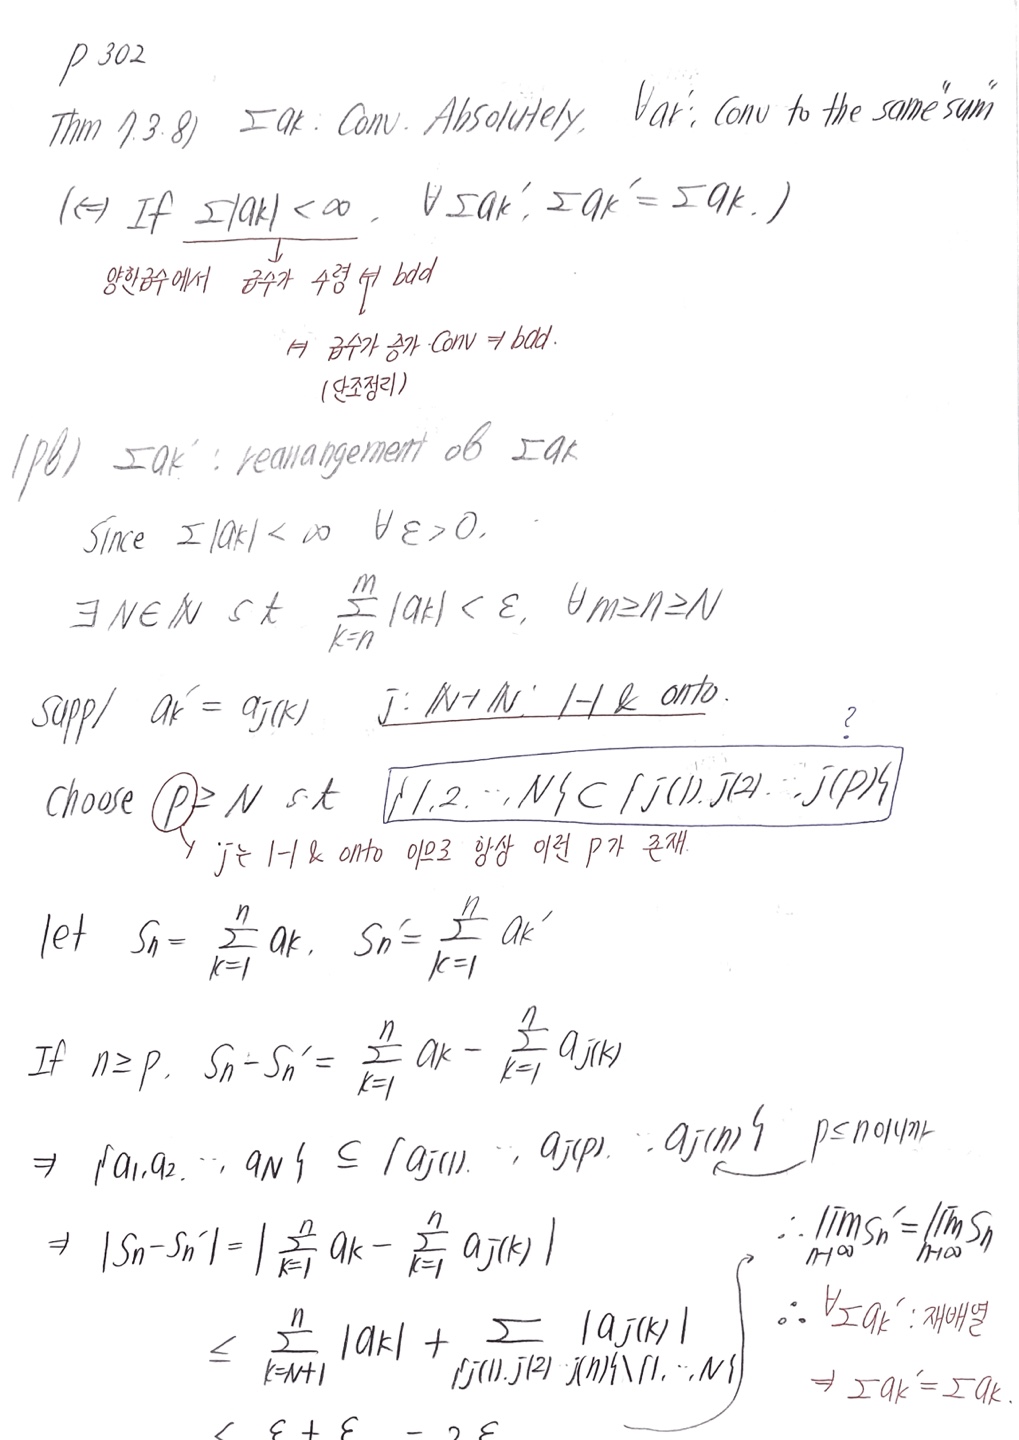 p 302
Thm 7.3.8) Σak : Conv. Absolutely, ∀ak' : Conv to the same "sum"
(⇔ If Σ|ak| < ∞, ∀Σak', Σak' = Σak.)
양항급수에서 급수가 수렴 ⇔ bdd
⇔ 급수가 증가 Conv ⇒ bdd.
(단조정리)
(pf) Σak' : rearrangement of Σak
Since Σ|ak| < ∞ ∀ε>0,
∃N∈ℕ s t Σ_{k=n}^{m} |ak| < ε, ∀m≥n≥N
supp/ ak' = aj(k) j : ℕ→ℕ : 1-1 & onto.
?
choose p ≥ N s.t {1,2, ..., N} ⊂ {j(1), j(2) ..., j(p)}
j는 1-1 & onto 이므로 항상 이런 p가 존재.
let Sn = Σ_{k=1}^{n} ak, Sn' = Σ_{k=1}^{n} ak'
If n≥p, Sn - Sn' = Σ_{k=1}^{n} ak - Σ_{k=1}^{n} aj(k)
⇒ {a1, a2, ..., aN} ⊆ {aj(1), ..., aj(p), ..., aj(n)} p≤n이니까
⇒ |Sn-Sn'| = |Σ_{k=1}^{n} ak - Σ_{k=1}^{n} aj(k)|
≤ Σ_{k=N+1}^{n} |ak| + Σ_{{j(1), j(2) ... j(n)}\{1, ..., N}} |aj(k)|
< ε + ε = 2ε
∴ lim_{n→∞} Sn' = lim_{n→∞} Sn
∴ ∀Σak' : 재배열
⇒ Σak' = Σak.